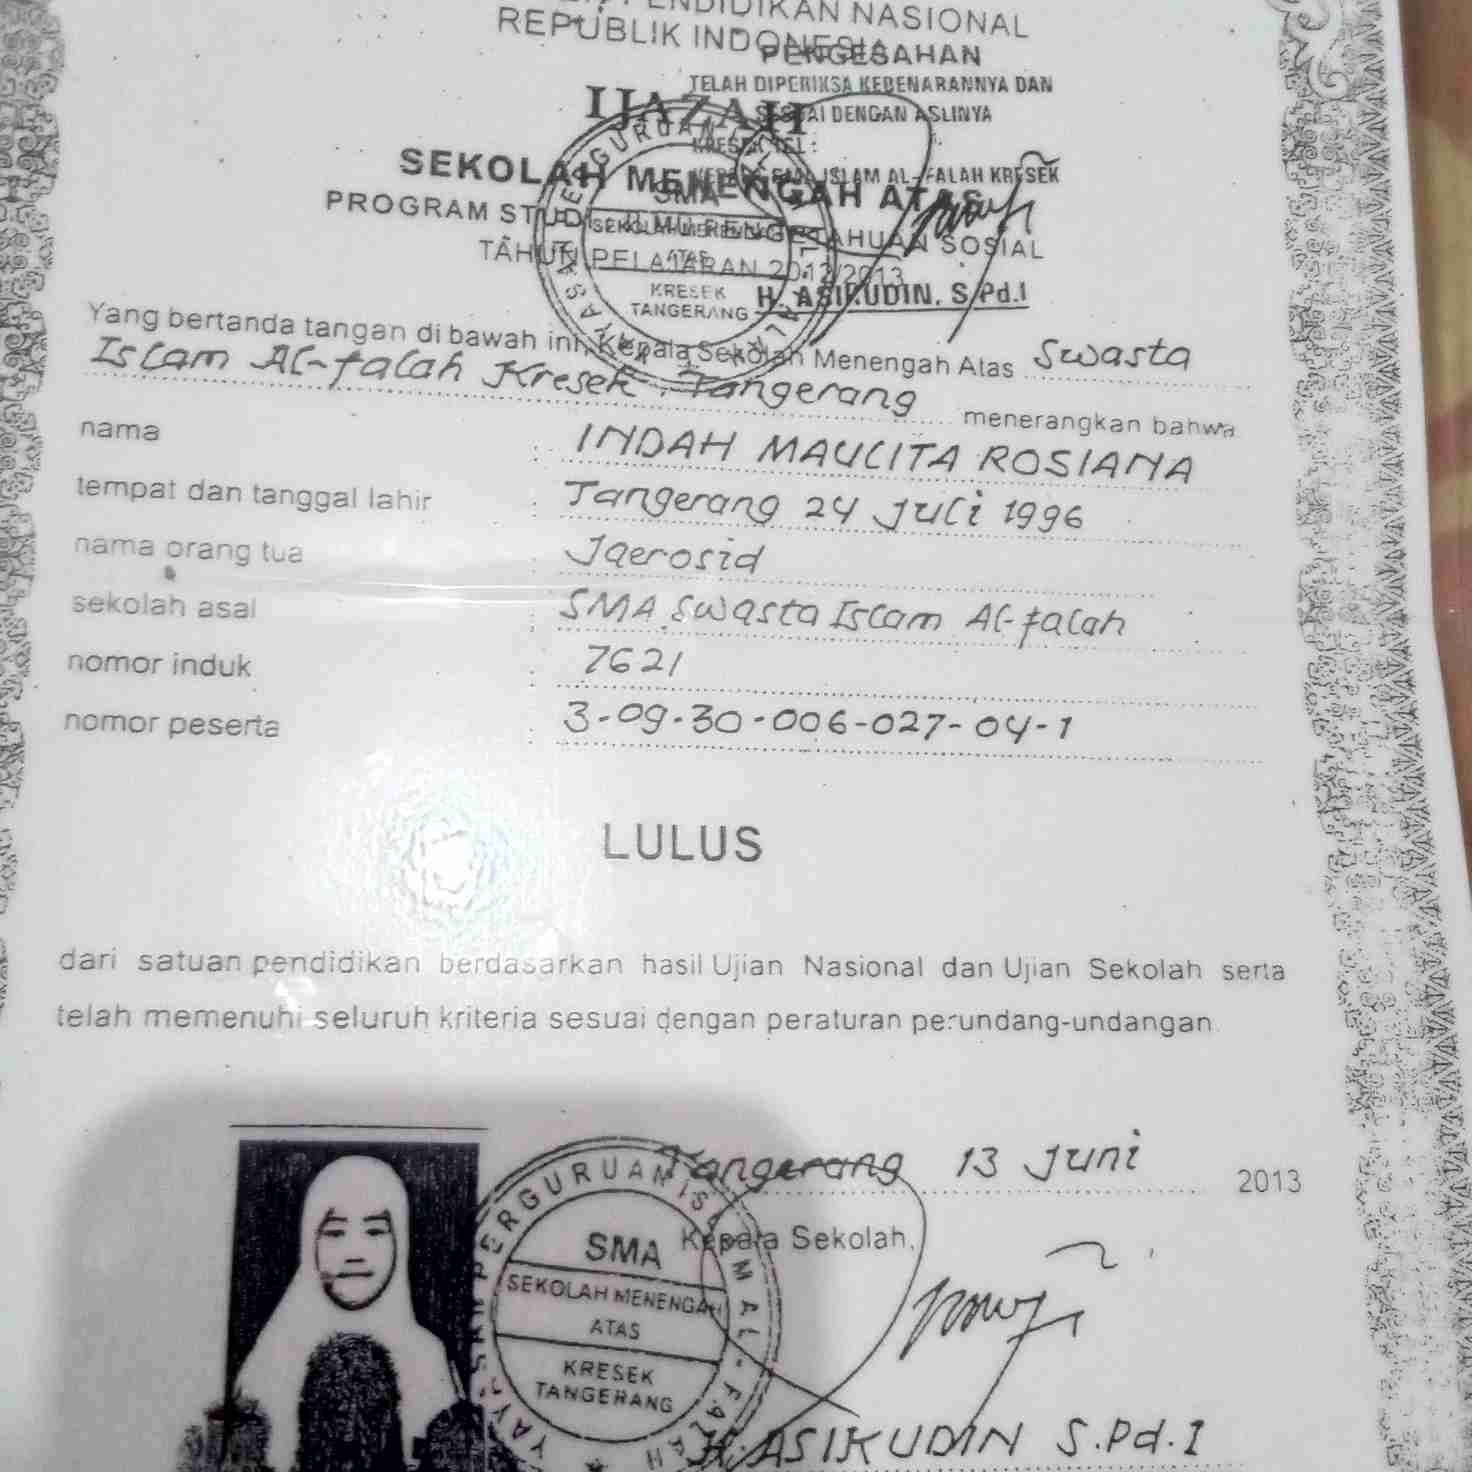 PENDIDIKAN NASIONAL
REPUBLIK INDONESIA
PENGESAHAN
TELAH DIPERIKSA KEBENARANNYA DAN
SESUAI DENGAN ASLINYA
IJAZAH
KRESEK TGL :
ISLAM AL-FALAH KRESEK
SEKOLAH MENENGAH ATAS
PROGRAM STUDI ILMU PENGETAHUAN SOSIAL
TAHUN PELAJARAN 2012/2013
SMA
SEKOLAH MENENGAH
ATAS
KRESEK
TANGERANG
H. ASIKUDIN, S.Pd.I
Yang bertanda tangan di bawah ini, Kepala Sekolah Menengah Atas Swasta
Islam Al-falah Kresek. Tangerang menerangkan bahwa
nama : INDAH MAULITA ROSIANA
tempat dan tanggal lahir : Tangerang 24 Juli 1996
nama orang tua : Jaerosid
sekolah asal : SMA Swasta Islam Al-falah
nomor induk : 7621
nomor peserta : 3-09-30-006-027-04-1
LULUS
dari satuan pendidikan berdasarkan hasil Ujian Nasional dan Ujian Sekolah serta
telah memenuhi seluruh kriteria sesuai dengan peraturan perundang-undangan.
Tangerang 13 Juni 2013
Kepala Sekolah,
YAYASAN PERGURUAN ISLAM AL-FALAH
SMA
SEKOLAH MENENGAH
ATAS
KRESEK
TANGERANG
H. ASIKUDIN S.Pd.I